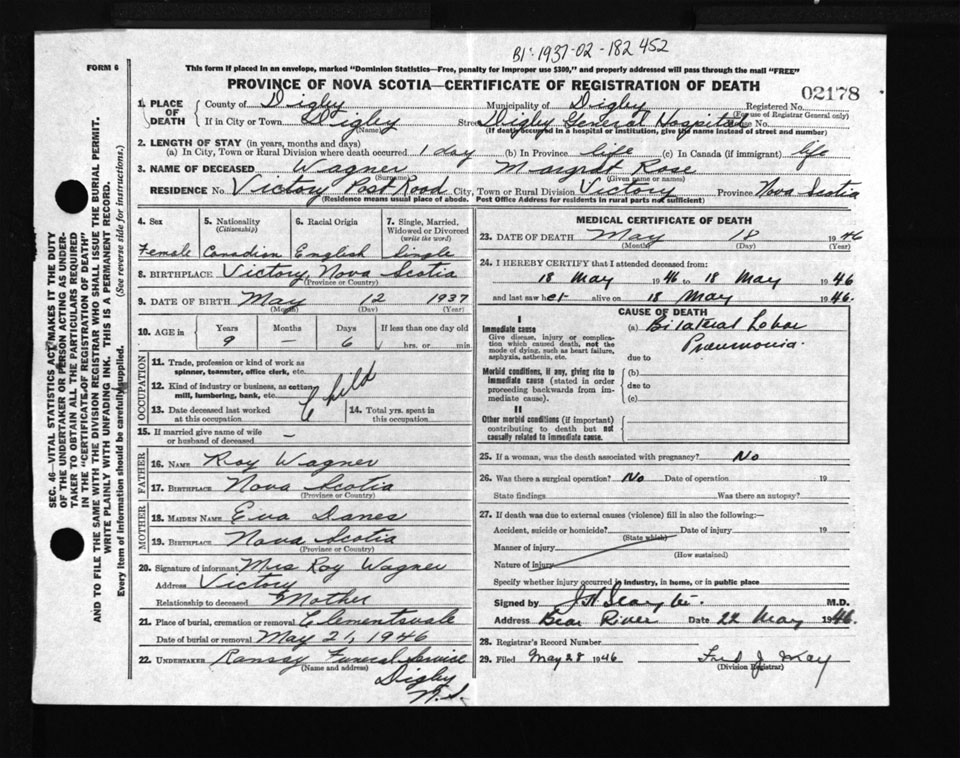 B1: 1937-02-182452
FORM 6
This form if placed in an envelope, marked "Dominion Statistics—Free, penalty for improper use $300," and properly addressed will pass through the mail "FREE"
PROVINCE OF NOVA SCOTIA—CERTIFICATE OF REGISTRATION OF DEATH
02178
SEC. 46—VITAL STATISTICS ACT MAKES IT THE DUTY
OF THE UNDERTAKER OR PERSON ACTING AS UNDER-
TAKER TO OBTAIN ALL THE PARTICULARS REQUIRED
IN THE "CERTIFICATE OF REGISTRATION OF DEATH"
AND TO FILE THE SAME WITH THE DIVISION REGISTRAR WHO SHALL ISSUE THE BURIAL PERMIT.
WRITE PLAINLY WITH UNFADING INK. THIS IS A PERMANENT RECORD.
Every item of information should be carefully supplied. (See reverse side for instructions.)
1. PLACE OF DEATH County of Digby Municipality of Digby Registered No.
(For use of Registrar General only)
If in City or Town Digby Street Digby General Hospital House No.
(Name) (If death occurred in a hospital or institution, give the name instead of street and number)
2. LENGTH OF STAY (in years, months and days)
(a) In City, Town or Rural Division where death occurred 1 day (b) In Province life (c) In Canada (if immigrant) life
3. NAME OF DECEASED Wagner Margrat Rose
(Surname) (Given name or names)
RESIDENCE No. Victory Post Road City, Town or Rural Division Victory Province Nova Scotia
(Residence means usual place of abode. Post Office Address for residents in rural parts not sufficient)
4. Sex 5. Nationality (Citizenship) 6. Racial Origin 7. Single, Married, Widowed or Divorced (write the word)
Female Canadian English Single
8. BIRTHPLACE Victory, Nova Scotia
(Province or Country)
9. DATE OF BIRTH May 12 1937
(Month) (Day) (Year)
10. AGE in Years Months Days If less than one day old
9 — 6 hrs. or min.
OCCUPATION
11. Trade, profession or kind of work as spinner, teamster, office clerk, etc.
12. Kind of industry or business, as cotton mill, lumbering, bank, etc.
Child
13. Date deceased last worked at this occupation 14. Total yrs. spent in this occupation
15. If married give name of wife or husband of deceased —
FATHER
16. NAME Roy Wagner
17. BIRTHPLACE Nova Scotia
(Province or Country)
MOTHER
18. MAIDEN NAME Eva Danes
19. BIRTHPLACE Nova Scotia
(Province or Country)
20. Signature of informant Mrs Roy Wagner
Address Victory
Relationship to deceased Mother
21. Place of burial, cremation or removal Clementsvale
Date of burial or removal May 21, 1946
22. UNDERTAKER Ransay Funeral Service
(Name and address) Digby
N.S.
MEDICAL CERTIFICATE OF DEATH
23. DATE OF DEATH May 18 1946
(Month) (Day) (Year)
24. I HEREBY CERTIFY that I attended deceased from:
18 May 1946 to 18 May 1946
and last saw her alive on 18 May 1946.
CAUSE OF DEATH
I
Immediate cause (a) Bilateral Lobar
Give disease, injury or complication which caused death, not the mode of dying, such as heart failure, asphyxia, asthenia, etc. Pneumonia.
due to
Morbid conditions, if any, giving rise to immediate cause (stated in order proceeding backwards from immediate cause). (b)
due to
(c)
II
Other morbid conditions (if important) contributing to death but not causally related to immediate cause.
25. If a woman, was the death associated with pregnancy? No
26. Was there a surgical operation? No Date of operation 19
State findings Was there an autopsy?
27. If death was due to external causes (violence) fill in also the following:—
Accident, suicide or homicide? Date of injury 19
(State which)
Manner of injury
(How sustained)
Nature of injury
Specify whether injury occurred in industry, in home, or in public place
Signed by M.D.
Address Bear River Date 22 May 1946.
28. Registrar's Record Number
29. Filed May 28 1946 Fred J McKay
(Division Registrar)